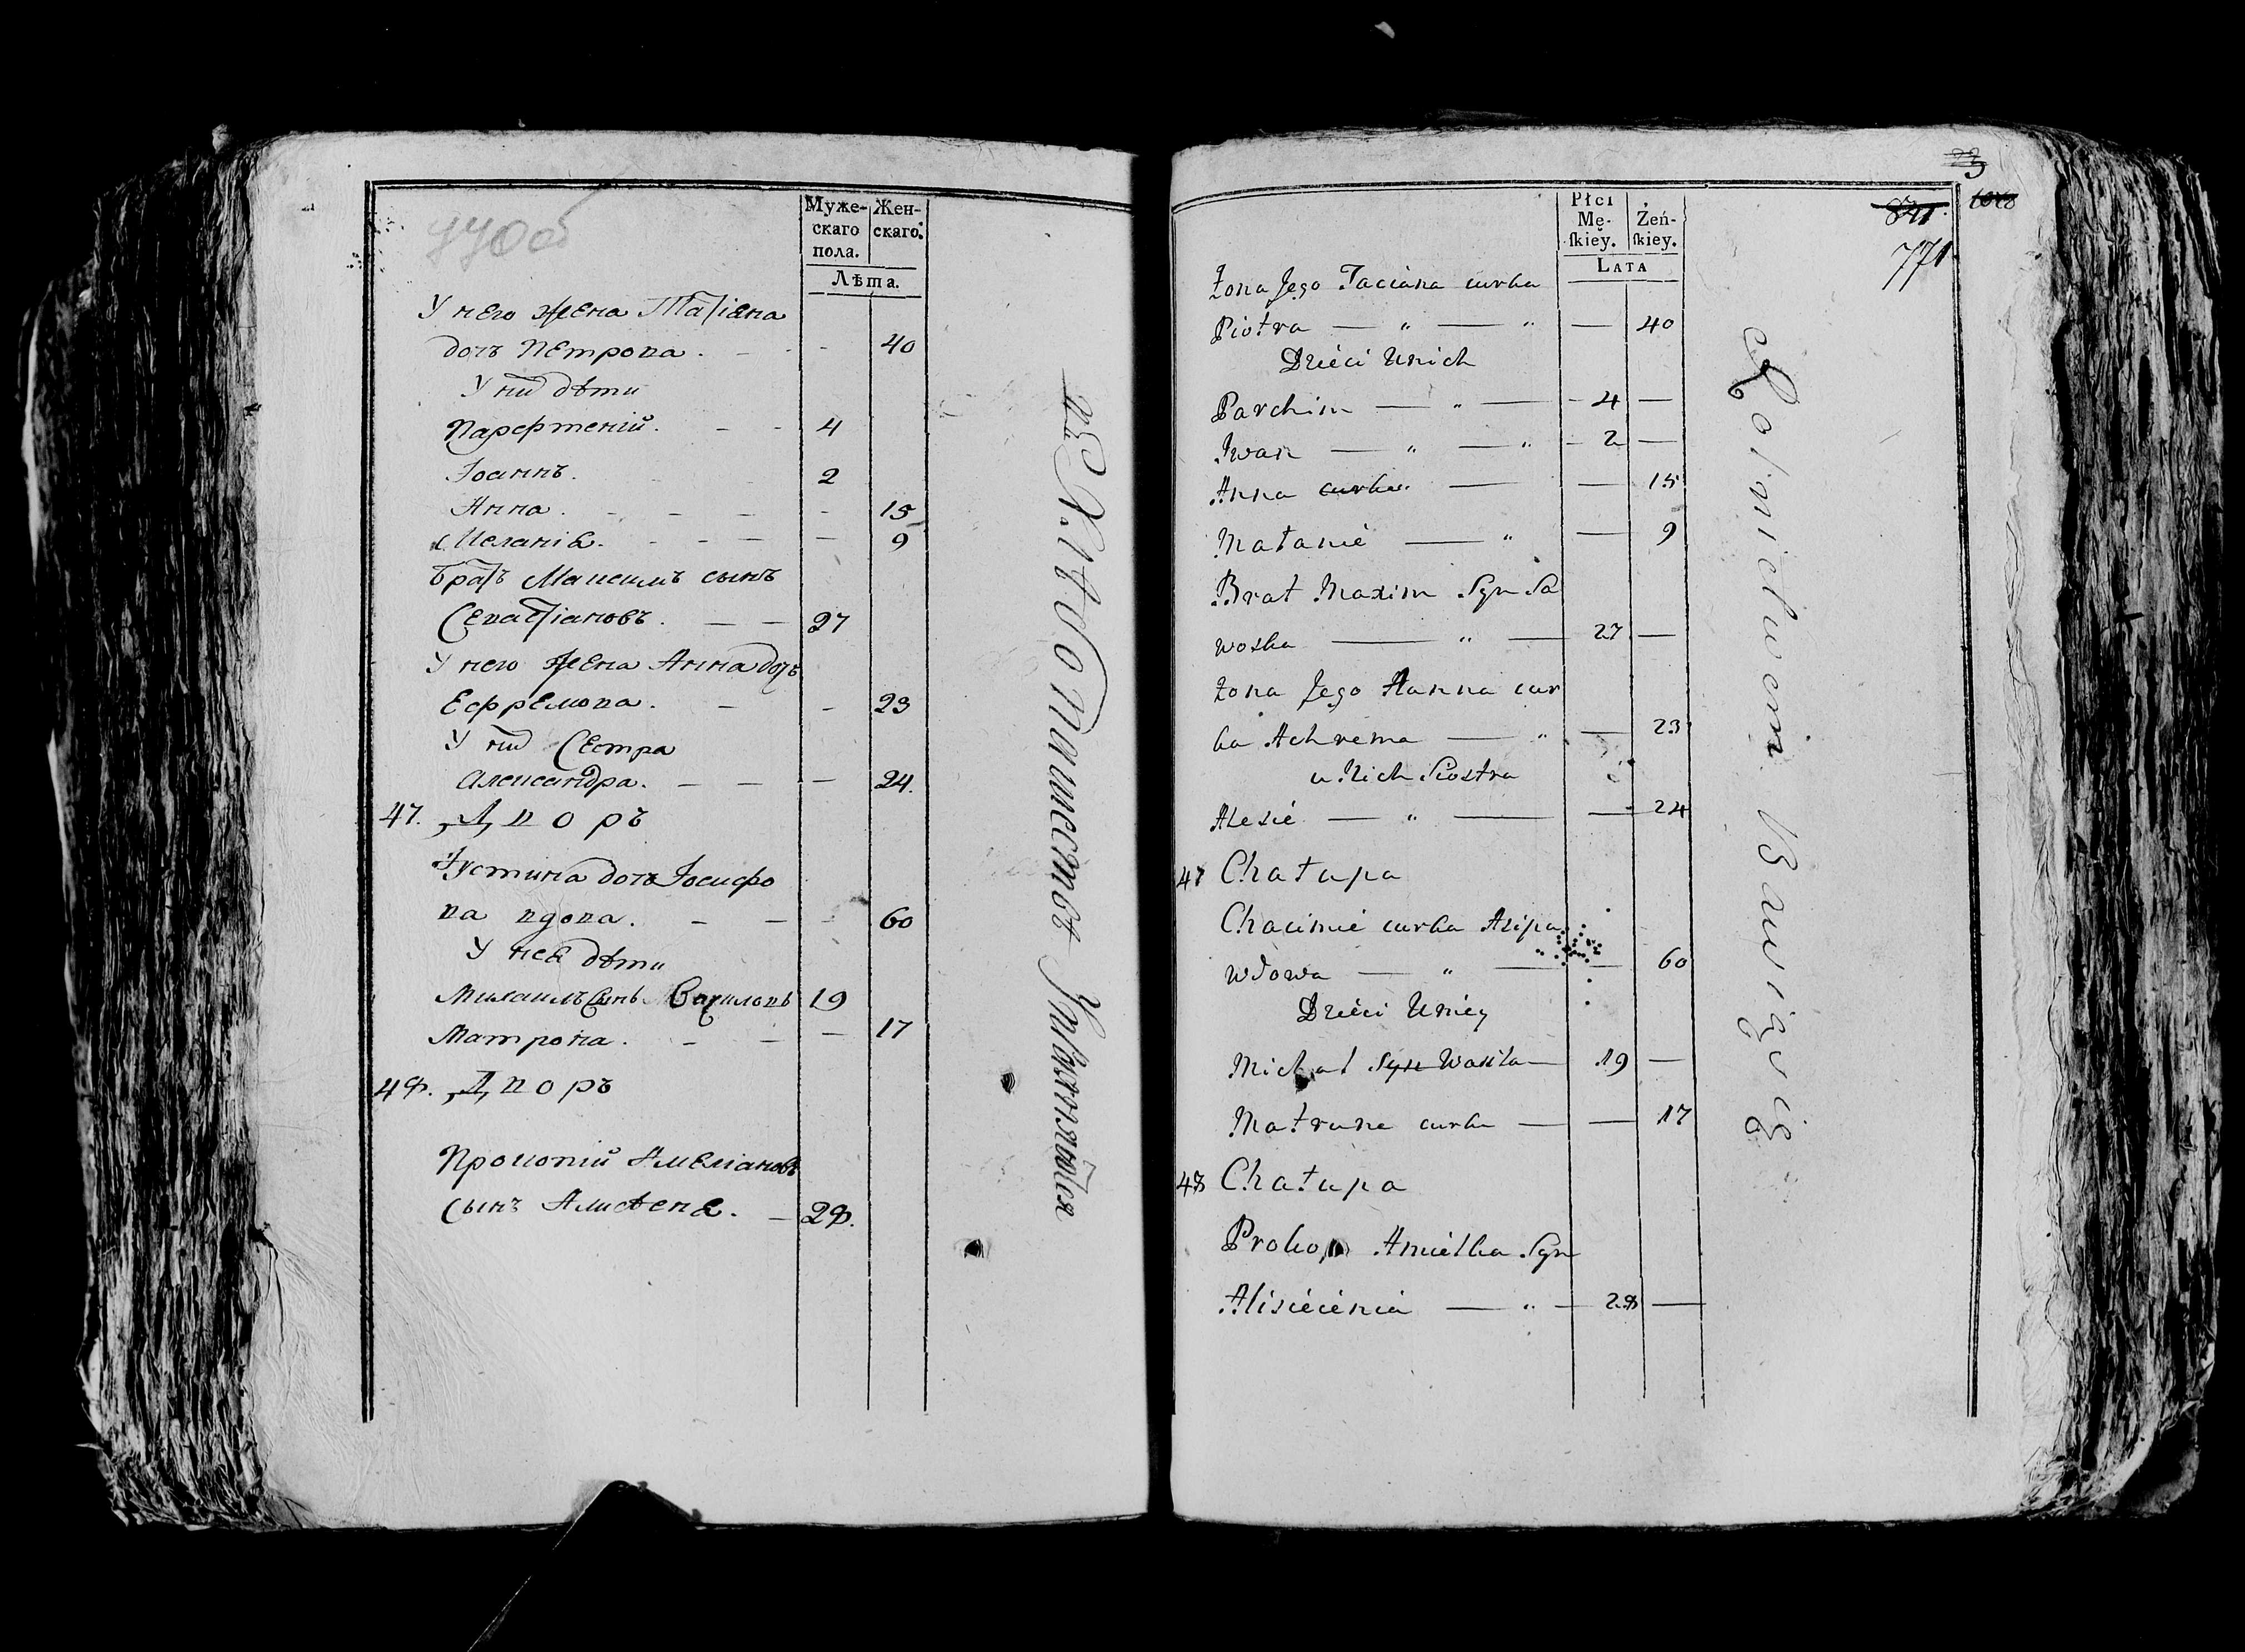 770об
Муже-
скаго
пола.
Жен-
скаго.
Лѣта.
У него жена Татіана
дочь Петрова. 40
У них дѣти
Парфтеній. 4
Іоаннъ. 2
Анна. 15
Меланія. 9
Братъ Максимъ сынъ
Севастіановъ. 27
У него жена Анна дочь
Ефремова. 23
У них Сестра
Александра. 24.
47. Дворъ
Іустина дочь Іосифо
ва вдова. 60
У нея дѣти
Михаилъ сынъ Василовъ 19
Матрона. 17
48. Дворъ
Прокопій Амеліановъ
сынъ 28.
23
771
Płci
Mę-
skiey.
Żeń-
skiey.
LATA
Żona Jego Taciana curka
Piotra — " — " — 40
Dzieci Unich
Parchim — " — 4 —
Jwan — " — " — 2 —
Anna curka — — 15
Małanie — " — 9
Brat Maxim Syn Sa
woska — " — 27 —
Żona Jego Hanna cur
ka Achrema — " — 23
u Nich Siostra
Alesie — " — — 24
47 Chałupa
Chacimie curka Asipa
wdowa — " — — 60
Dzieci Uniey
Michał Syn Wasila — 19 —
Matruna curka — — 17
48 Chałupa
Prokop Amielka Syn
Alisieienia — " — 28 —